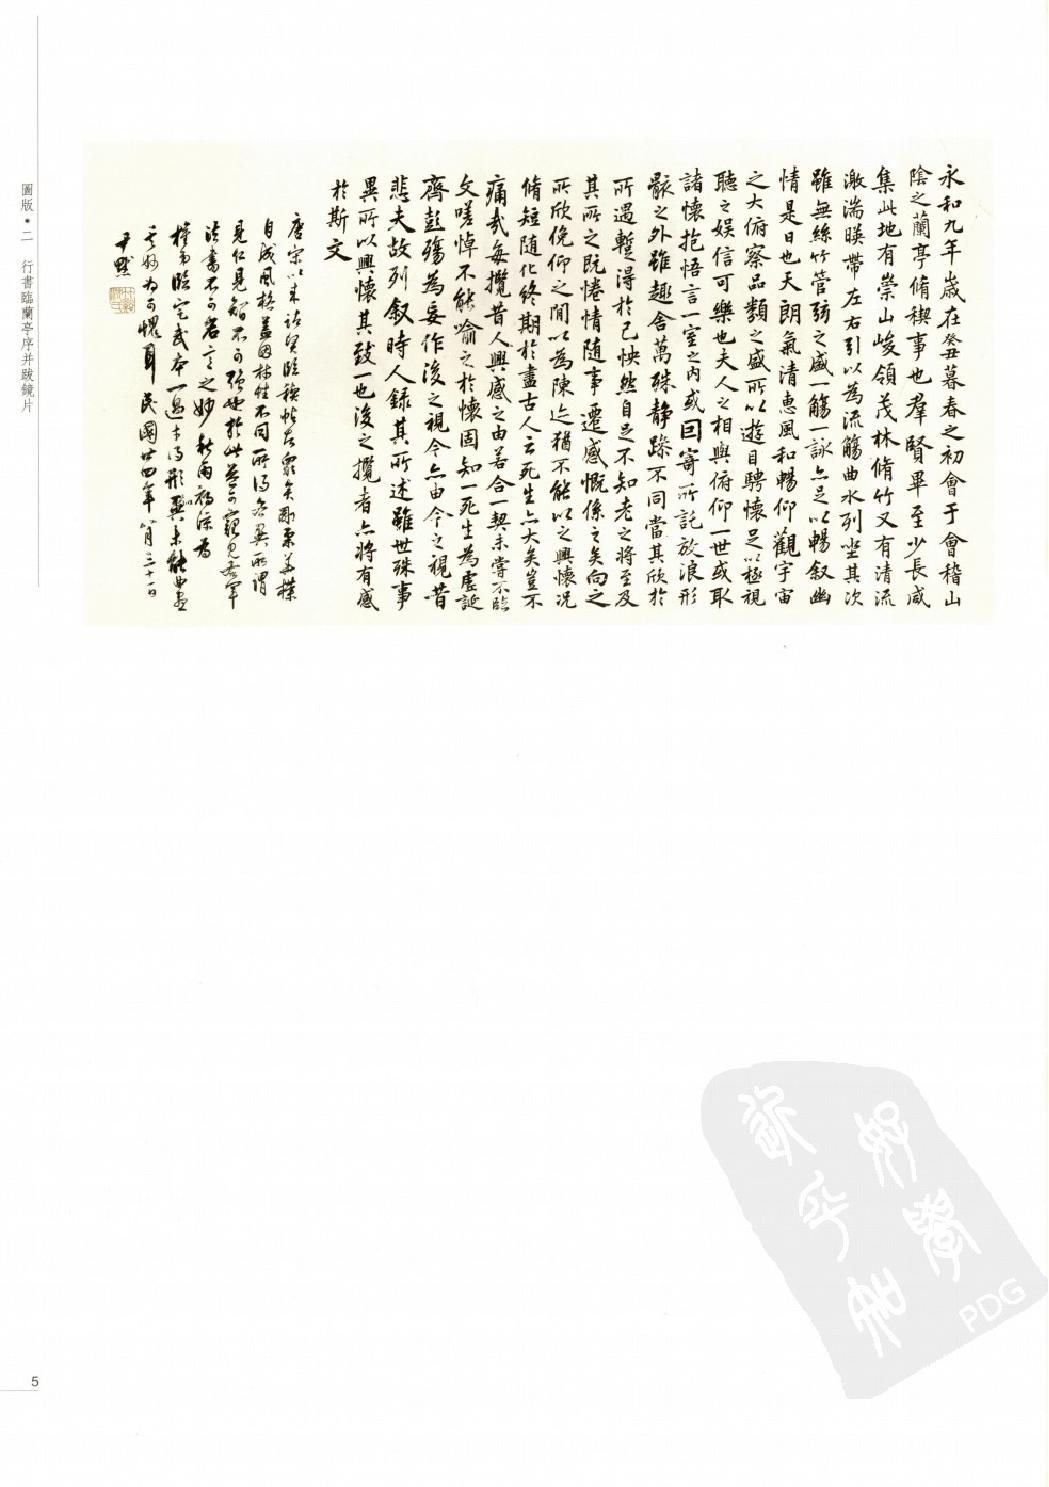 永和九年歲在癸丑暮春之初會于會稽山
陰之蘭亭脩稧事也羣賢畢至少長咸
集此地有崇山峻領茂林脩竹又有清流
激湍暎帶左右引以為流觴曲水列坐其次
雖無絲竹管弦之盛一觴一詠亦足以暢叙幽
情是日也天朗氣清惠風和暢仰觀宇宙
之大俯察品類之盛所以遊目騁懷足以極視
聽之娛信可樂也夫人之相與俯仰一世或取
諸懷抱悟言一室之內或因寄所託放浪形
骸之外雖趣舍萬殊静躁不同當其欣於
所遇暫得於己怏然自足不知老之將至及
其所之既惓情隨事遷感慨係之矣向之
所欣俛仰之間以為陳迹猶不能以之興懷況
脩短随化終期於盡古人云死生亦大矣豈不
痛哉每攬昔人興感之由若合一契未嘗不臨
文嗟悼不能喻之於懷固知一死生為虛誕
齊彭殤為妄作後之視今亦由今之視昔
悲夫故列叙時人錄其所述雖世殊事
異所以興懷其致一也後之攬者亦將有感
於斯文
唐宋以来諸賢臨稧帖者衆矣剛柔華樸
自成風格蓋因材性不同所得各異所謂
見仁見智不可强也於此益可窺見右軍
法書不可名言之妙秋雨初涼為
臨定武本一過未得形䫫未能
其妙為可愧耳民國廿四年八月三十一日
尹默
圖版•二 行書臨蘭亭序并跋鏡片
5
PDG